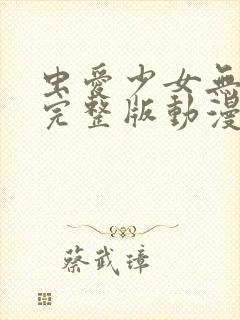 虫愛少女無
完整版動漫
蔡武璋